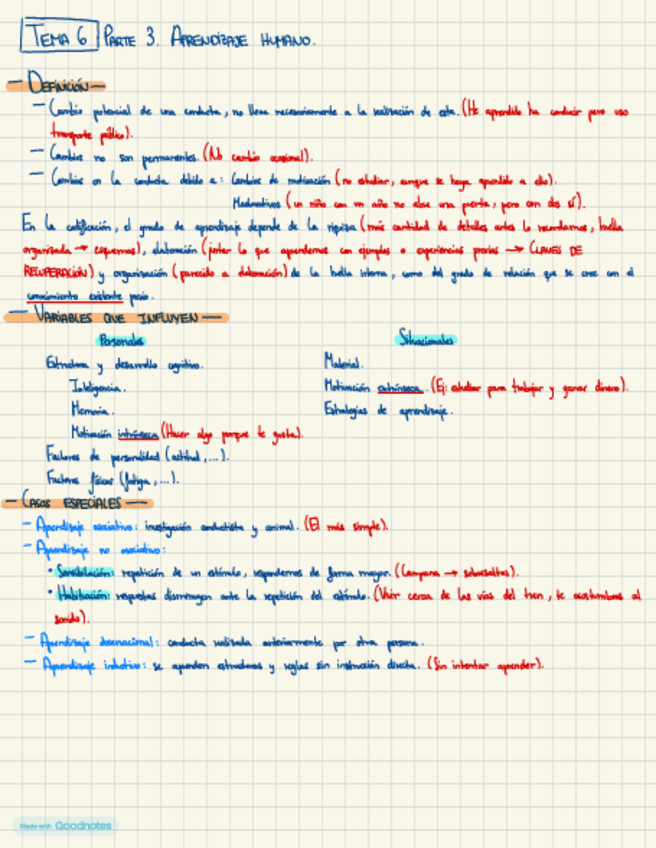 TEMA 6 PARTE 3. APRENDIZAJE HUMANO.
- DEFINICIÓN -
- Cambio potencial de una conducta, no lleva necesariamente a la realización de esta. (He aprendido ha conducir pero uso
transporte público).
- Cambios no son permanentes. (No cambio ocasional).
- Cambios en la conducta debido a: Cambios de motivación (no estudiar, aunque se haya aprendido a ello).
Madurativos (un niño con un año no abre una puerta, pero con dos sí).
En la codificación, el grado de aprendizaje depende de la riqueza (más cantidad de detalles antes lo recordamos, huella
organizada → esquemas), elaboración (juntar lo que aprendemos con ejemplos o experiencias previas → CLAVES DE
RECUPERACIÓN) y organización (parecido a elaboración) de la huella interna, como del grado de relación que se cree con el
conocimiento existente previo.
- VARIABLES QUE INFLUYEN -
Personales Situacionales
Estructura y desarrollo cognitivo. Material.
Inteligencia. Motivación extrínseca. (Ej: estudiar para trabajar y ganar dinero).
Memoria. Estrategias de aprendizaje.
Motivación intrínseca (Hacer algo porque te gusta).
Factores de personalidad (actitud,...).
Factores físicos (fatiga,...).
- CASOS ESPECIALES -
- Aprendizaje asociativo: investigación conductista y animal. (El más simple).
- Aprendizaje no asociativo:
• Sensibilización: repetición de un estímulo, respondemos de forma mayor. (Campana → sobresaltos).
• Habituación: respuestas disminuyen ante la repetición del estímulo. (Vivir cerca de las vías del tren, te acostumbras al
sonido).
- Aprendizaje observacional: conducta realizada anteriormente por otra persona.
- Aprendizaje implícito: se aprenden estructuras y reglas sin instrucción directa. (Sin intentar aprender).
Made with Goodnotes